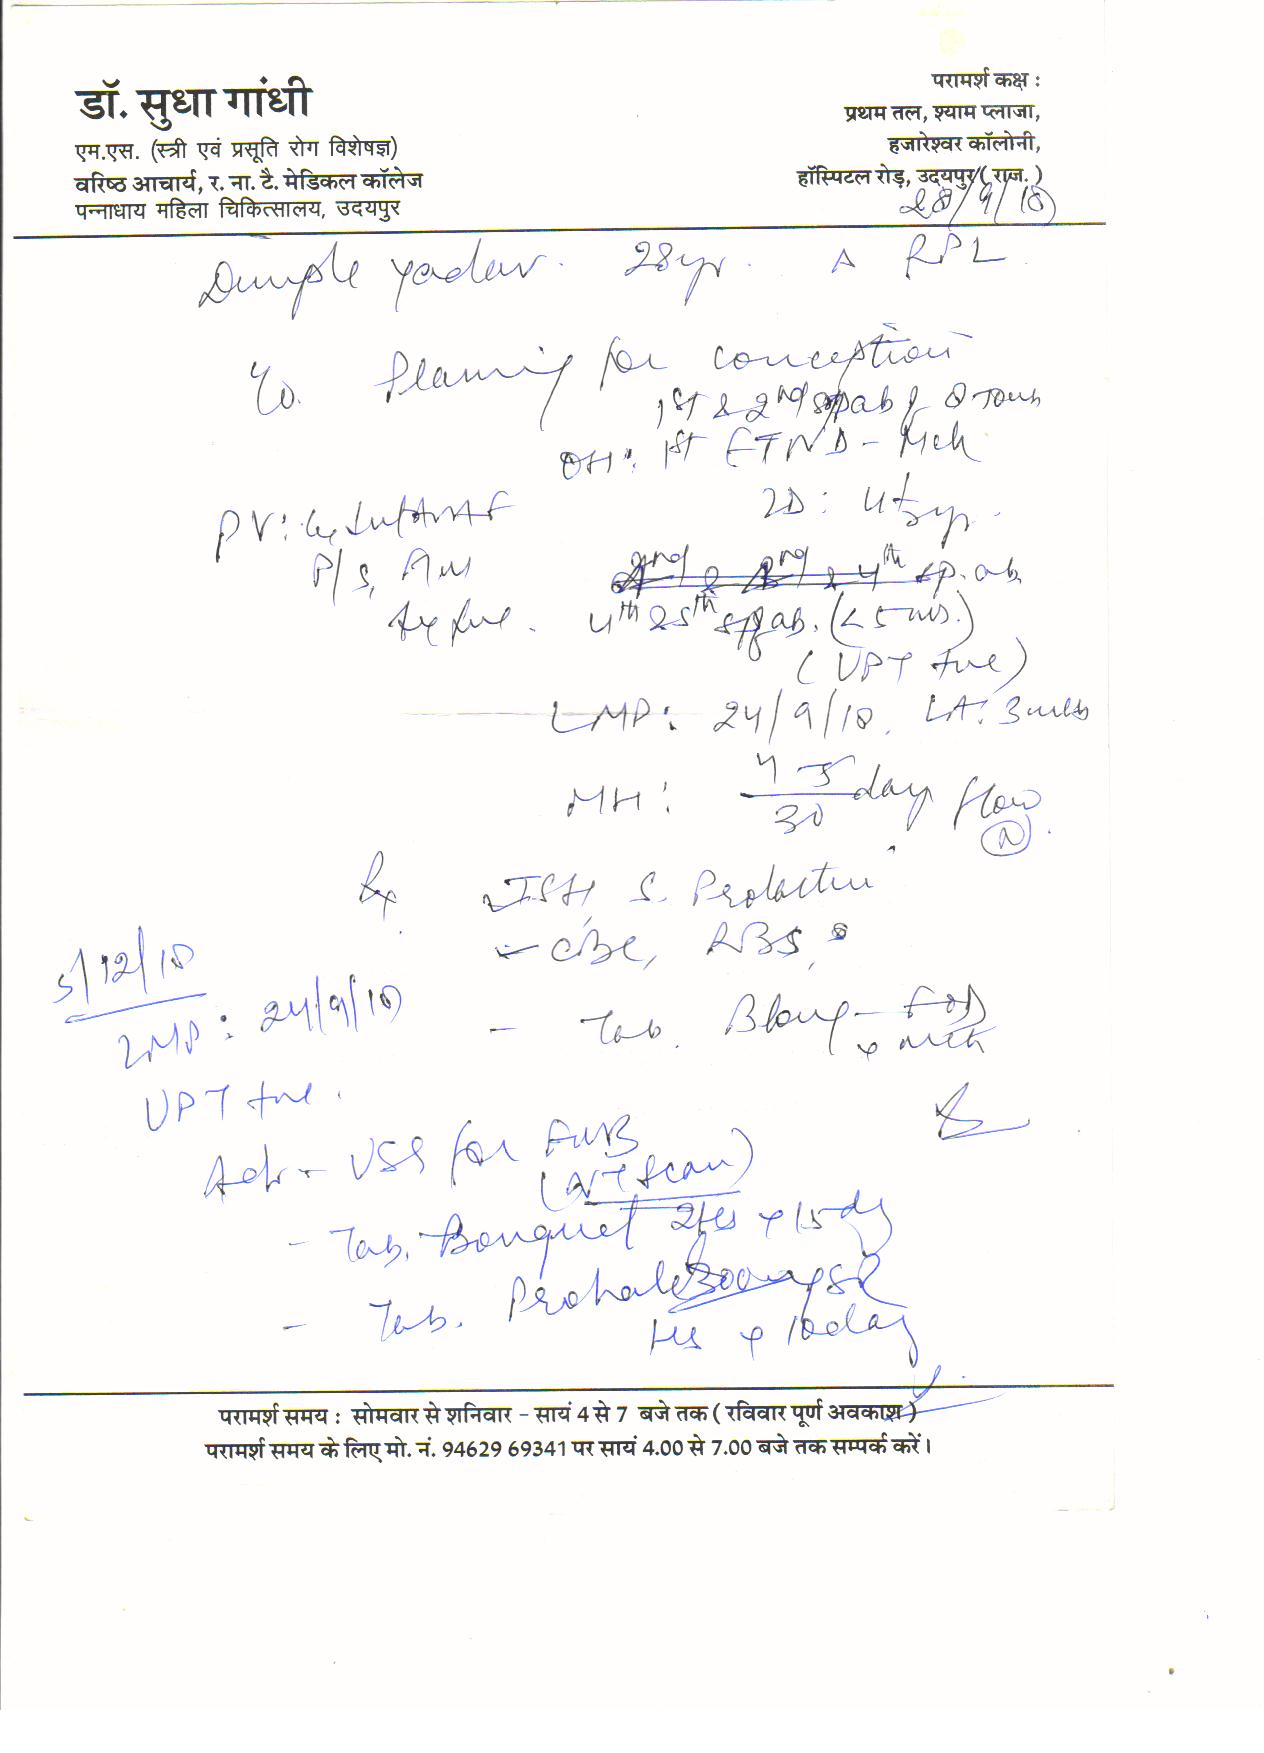 डॉ. सुधा गांधी
एम.एस. (स्त्री एवं प्रसूति रोग विशेषज्ञ)
वरिष्ठ आचार्य, र. ना. टै. मेडिकल कॉलेज
पन्नाधाय महिला चिकित्सालय, उदयपुर
परामर्श कक्ष :
प्रथम तल, श्याम प्लाजा,
हजारेश्वर कॉलोनी,
हॉस्पिटल रोड़, उदयपुर ( राज. )
28/9/18
Dimple Yadav. 28yr. Δ RPL
Planning for conception
1st & 2nd spab
OH: 1st FTND - Mch
PV: LD: 4½yr.
P/S,
4th & 5th sp ab. (<5 )
(UPT +ve)
LMP: 24/9/18, LA:
MH: 4 5 day flow
30 (N)
Rx TSH, S. Prolactin
- CBC, RBS,
- Tab. Blong-F OD
5/12/18
LMP: 24/9/18
UPT +ve.
Adv - USG for FWB
(NT Scan)
- Tab. 2Hs x 15 dy
- Tab. 300mg SR
Hs x 10 day
परामर्श समय : सोमवार से शनिवार - सायं 4 से 7 बजे तक ( रविवार पूर्ण अवकाश )
परामर्श समय के लिए मो. नं. 94629 69341 पर सायं 4.00 से 7.00 बजे तक सम्पर्क करें।